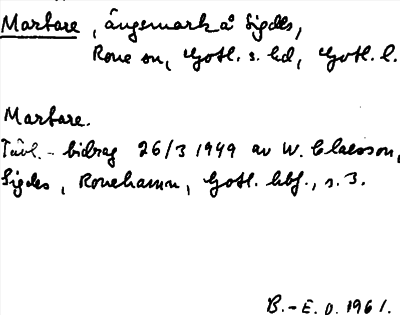 Martare, ängsmark å Sigdes,
Rone sn, Gotl. s. hd, Gotl. l.
Martare.
Tävl.-bidrag 26/3 1949 av W. Claesson,
Sigdes, Ronehamn, Gotl. hbf., s. 3.
B.-E. O. 1961.